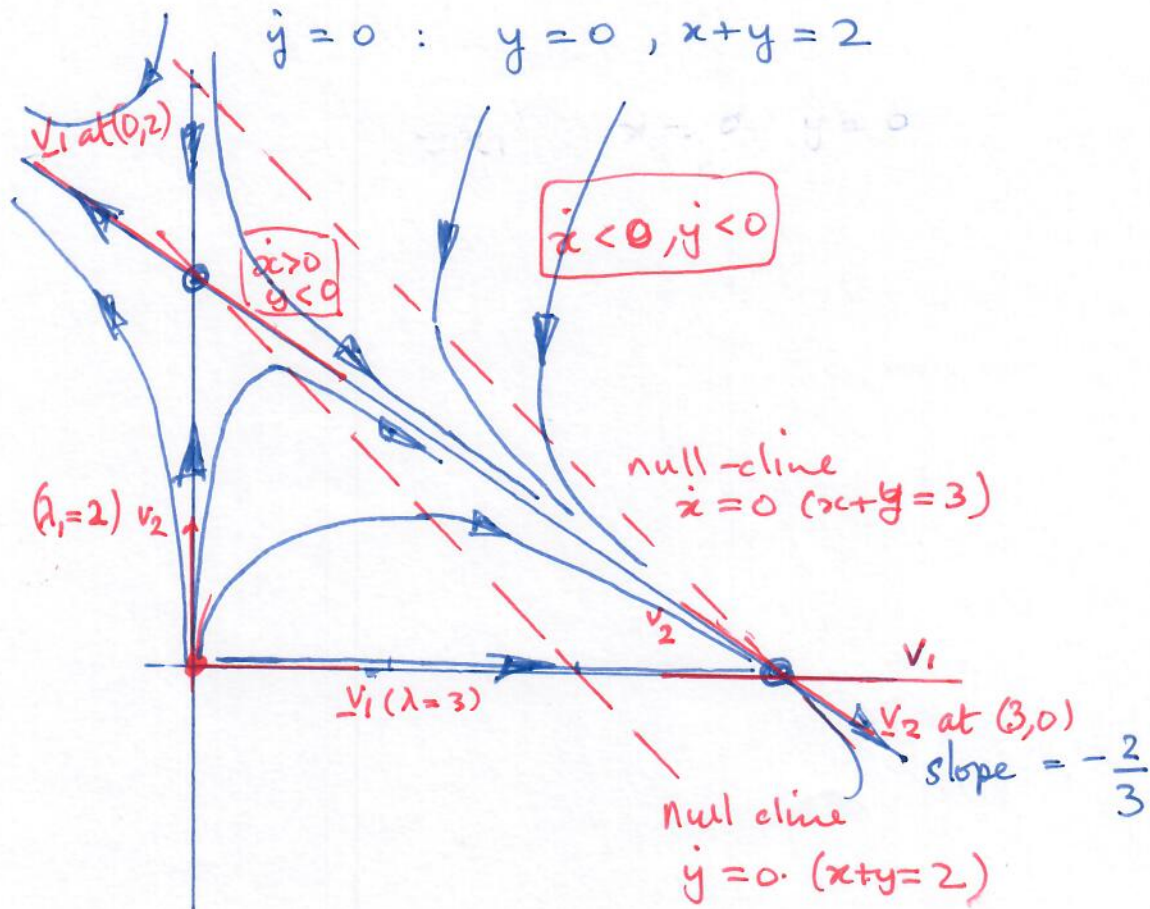 ẏ = 0 : y = 0 , x + y = 2
v₁ at (0,2)
ẋ>0
ẏ<0
ẋ < 0 , ẏ < 0
null-cline
ẋ = 0 (x+y = 3)
(λ₁=2) v₂
v₂
v₁
v₁ (λ=3)
v₂ at (3,0)
slope = -2/3
null cline
ẏ = 0. (x+y = 2)